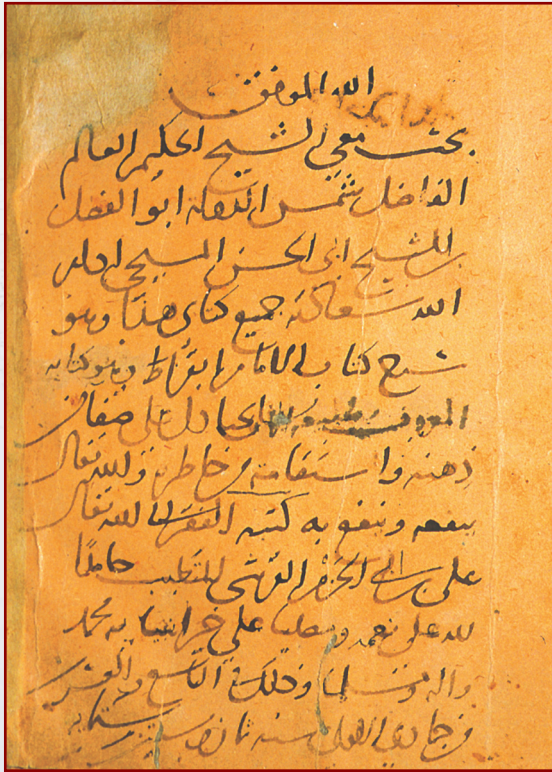 الله الموفق
بحث معي الشيخ الحكيم العالم
الفاضل شمس الدولة ابو الفضل
بن الشيخ ابى الحسن المسيحي ادام
الله سعادته جميع كتابى هذا وهو
شرح كتاب الامام ابقراط وهو كتابه
المعروف دل على صفاء
ذهنه واستقامة خاطره والله تعالى
ينفعه وينفع به كتبه الفقير الى الله تعالى
على بن ابى الحزم القرشى المتطبب حامدًا
لله على نعمه ومصليا على خير انبيايه محمد
واله ومسلما وذلك فى التاسع والعشرين
من جمادى الاولى سنه ثمان وستين وستمايه